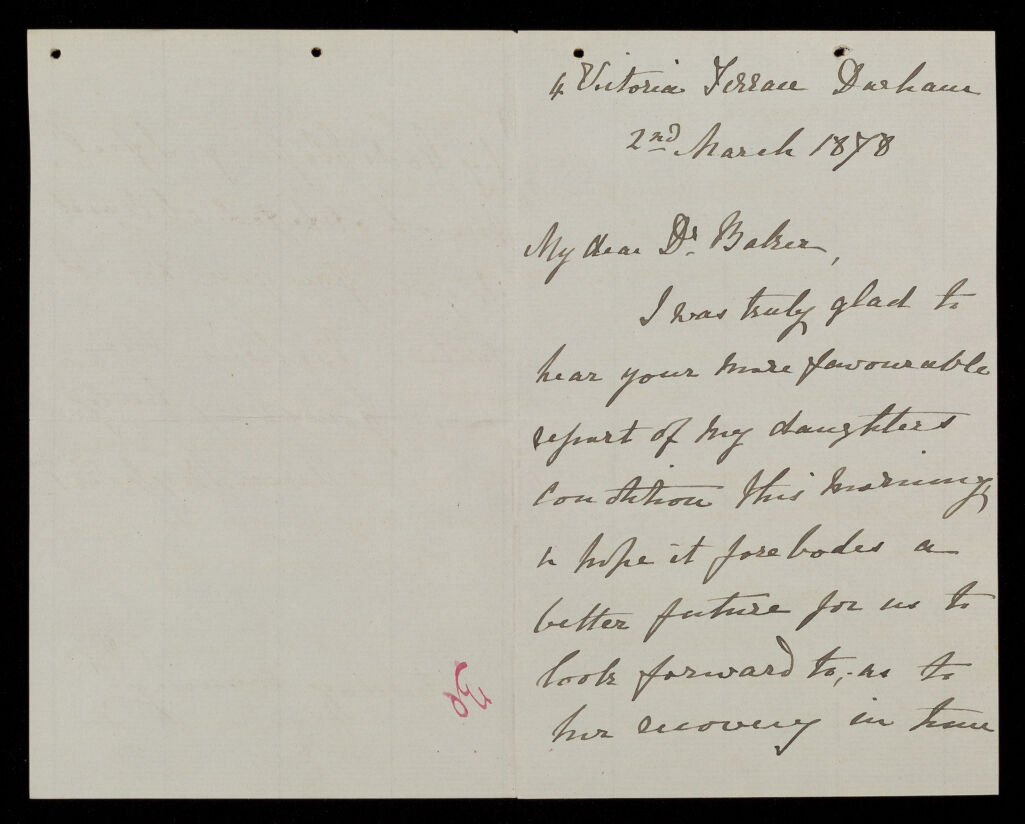 4 Victoria Terrace Durham
2nd March 1878
My dear Dr. Baker,
I was truly glad to
hear your more favourable
report of my daughters
condition this morning,
& hope it forebodes a
better future for us to
look forward to, as to
her recovery in time